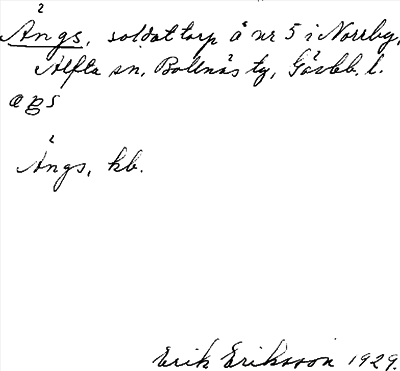 Ångs, soldattorp å nr 5 i Norrby,
Alfta sn, Bollnäs tg, Gävleb. l.
Ångs, kb.
Erik Eriksson 1929.